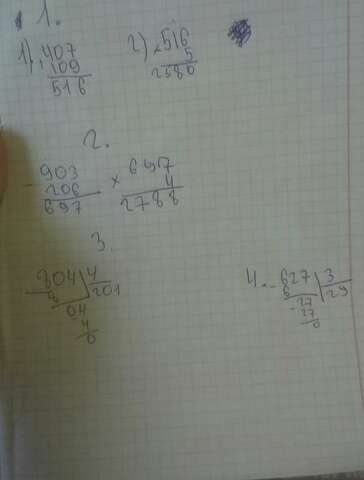 1.
1) + 407
109
516
2) × 516
5
2580
2.
- 903
206
697
× 697
4
2788
3.
- 804 | 4
8 201
04
4
0
4. - 627 | 3
6 29
- 27
27
0